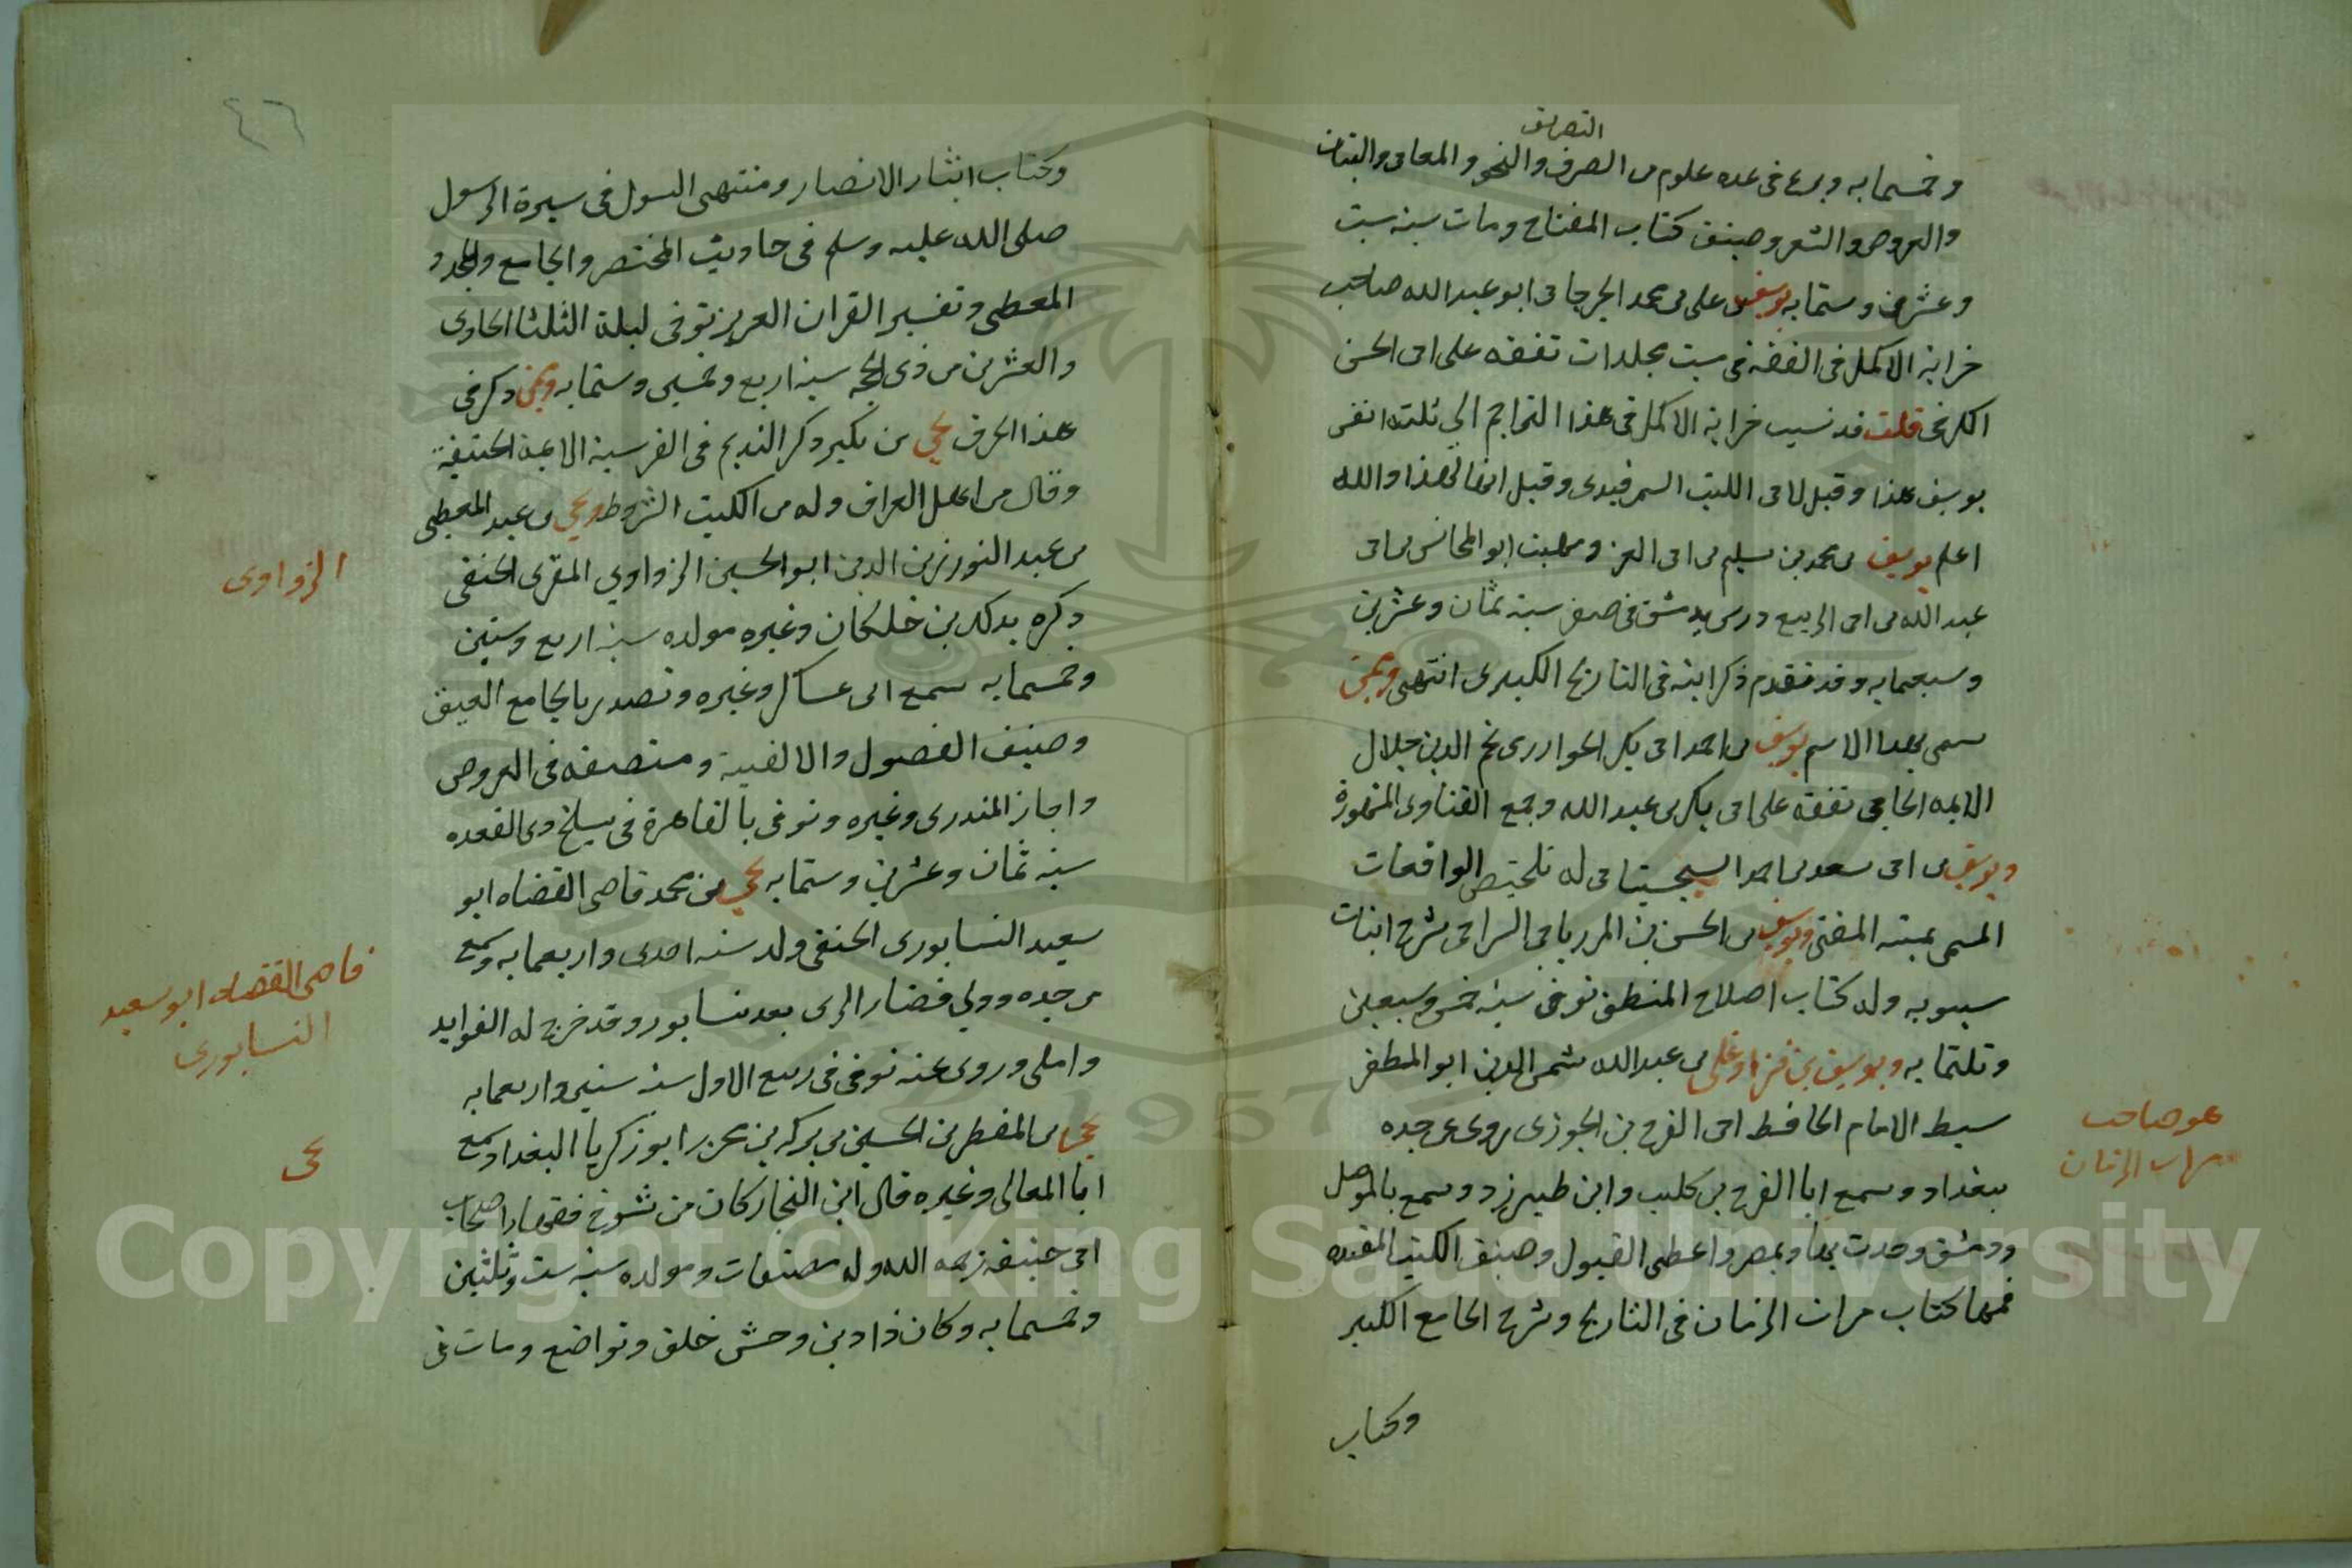 التصريف
وخمسمايه وبرع فى عده علوم من الصرف والنحو والمعانى والبيان
والعروض والشعر وصنف كتاب المفتاح ومات سنه ست
وعشرين وستمايه يوسف بن على بن محمد الجرجانى ابو عبد الله صاحب
خزانة الاكمل فى الفقه فى ست مجلدات تفقه على ابى الحسن
الكرخى قلت قد نسب خزانة الاكمل فى هذا التراجم الى ثلثه انفس
يوسف هذا وقيل لابى الليث السمرقندى وقيل انها لهذا والله
اعلم يوسف بن محمد بن سليم بن ابى العز وهيب ابو المحاسن بن ابى
عبد الله بن ابى الربيع درس بدمشق فى صفر سنة ثمان وعشرين
وسبعمايه وقد تقدم ذكر ابنه فى التاريخ الكبير انتهى وممن
سمى بهذا الاسم يوسف بن احمد ابى بكر الخوارزمى نجم الدين جلال
الايمه الخاصى تفقه على ابى بكر بن عبد الله وجمع الفتاوى المشهورة
ويوسف بن ابى سعد بن احمد السجستانى له تلخيص الواقعات
المسمى بمنيه المفتى ويوسف بن الحسن بن المرزبانى السيرافى شرح ابيات
سيبويه وله كتاب اصلاح المنطق توفى سنة خمس وسبعين
وثلثمايه ويوسف بن قزاوغلى بن عبد الله شمس الدين ابو المظفر
سبط الامام الحافظ ابى الفرج بن الجوزى روى عن جده
ببغداد وسمع ابا الفرج بن كليب وابن طبرزد وسمع بالموصل
ودمشق وحدث بها وبمصر واعطى القبول وصنف الكتب المفيده
فمنها كتاب مراة الزمان فى التاريخ وشرح الجامع الكبير
وكتاب
هو صاحب
مراة الزمان
٤٦
وكتاب ايثار الانصار ومنتهى السول فى سيرة الرسول
صلى الله عليه وسلم فى حاديث المختصر والجامع و
المعطى وتفسير القران العزيز توفى ليلة الثلثا الحادى
والعشرين من ذى الحجه سنه اربع وخمسين وستمايه وممن ذكر فى
هذا الحرف يحيى بن بكير ذكر النديم فى الفهرست فى الايمة الحنفية
وقال من اهل العراق وله من الكتب الشروط ويحيى بن عبد المعطى
بن عبد النور زين الدين ابو الحسين الزواوى المقرى الحنفى
ذكره بذلك بن خلكان وغيره مولده سنة اربع وستين
وخمسمايه سمع ابن عساكر وغيره وتصدر بالجامع العتيق
وصنف الفصول والالفية ومنصفه فى العروض
واجاز المنذرى وغيره وتوفى بالقاهرة فى سلخ ذى القعده
سنه ثمان وعشرين وستمايه يحيى بن محمد قاضى القضاه ابو
سعيد النسابورى الحنفى ولد سنه احدى واربعمايه وسمع
من جده وولى قضا الرى بعد نسابور وقد خرج له الفوايد
واملى وروى عنه توفى فى ربيع الاول سنة ستين واربعمايه
يحيى بن المظفر بن الحسين بن بركه بن محرز ابو زكريا البغداد سمع
ابا المعالى وغيره قال ابن النجار كان من شيوخ فقها اصحاب
ابى حنيفه رحمه الله وله مصنفات ومولده سنه ست وثلثين
وخمسمايه وكان ذا دين وحسن خلق وتواضع ومات فى
الزواوى
قاضى القضاه ابو سعيد
النسابورى
يحيى
Copyright © King Saud University
1957